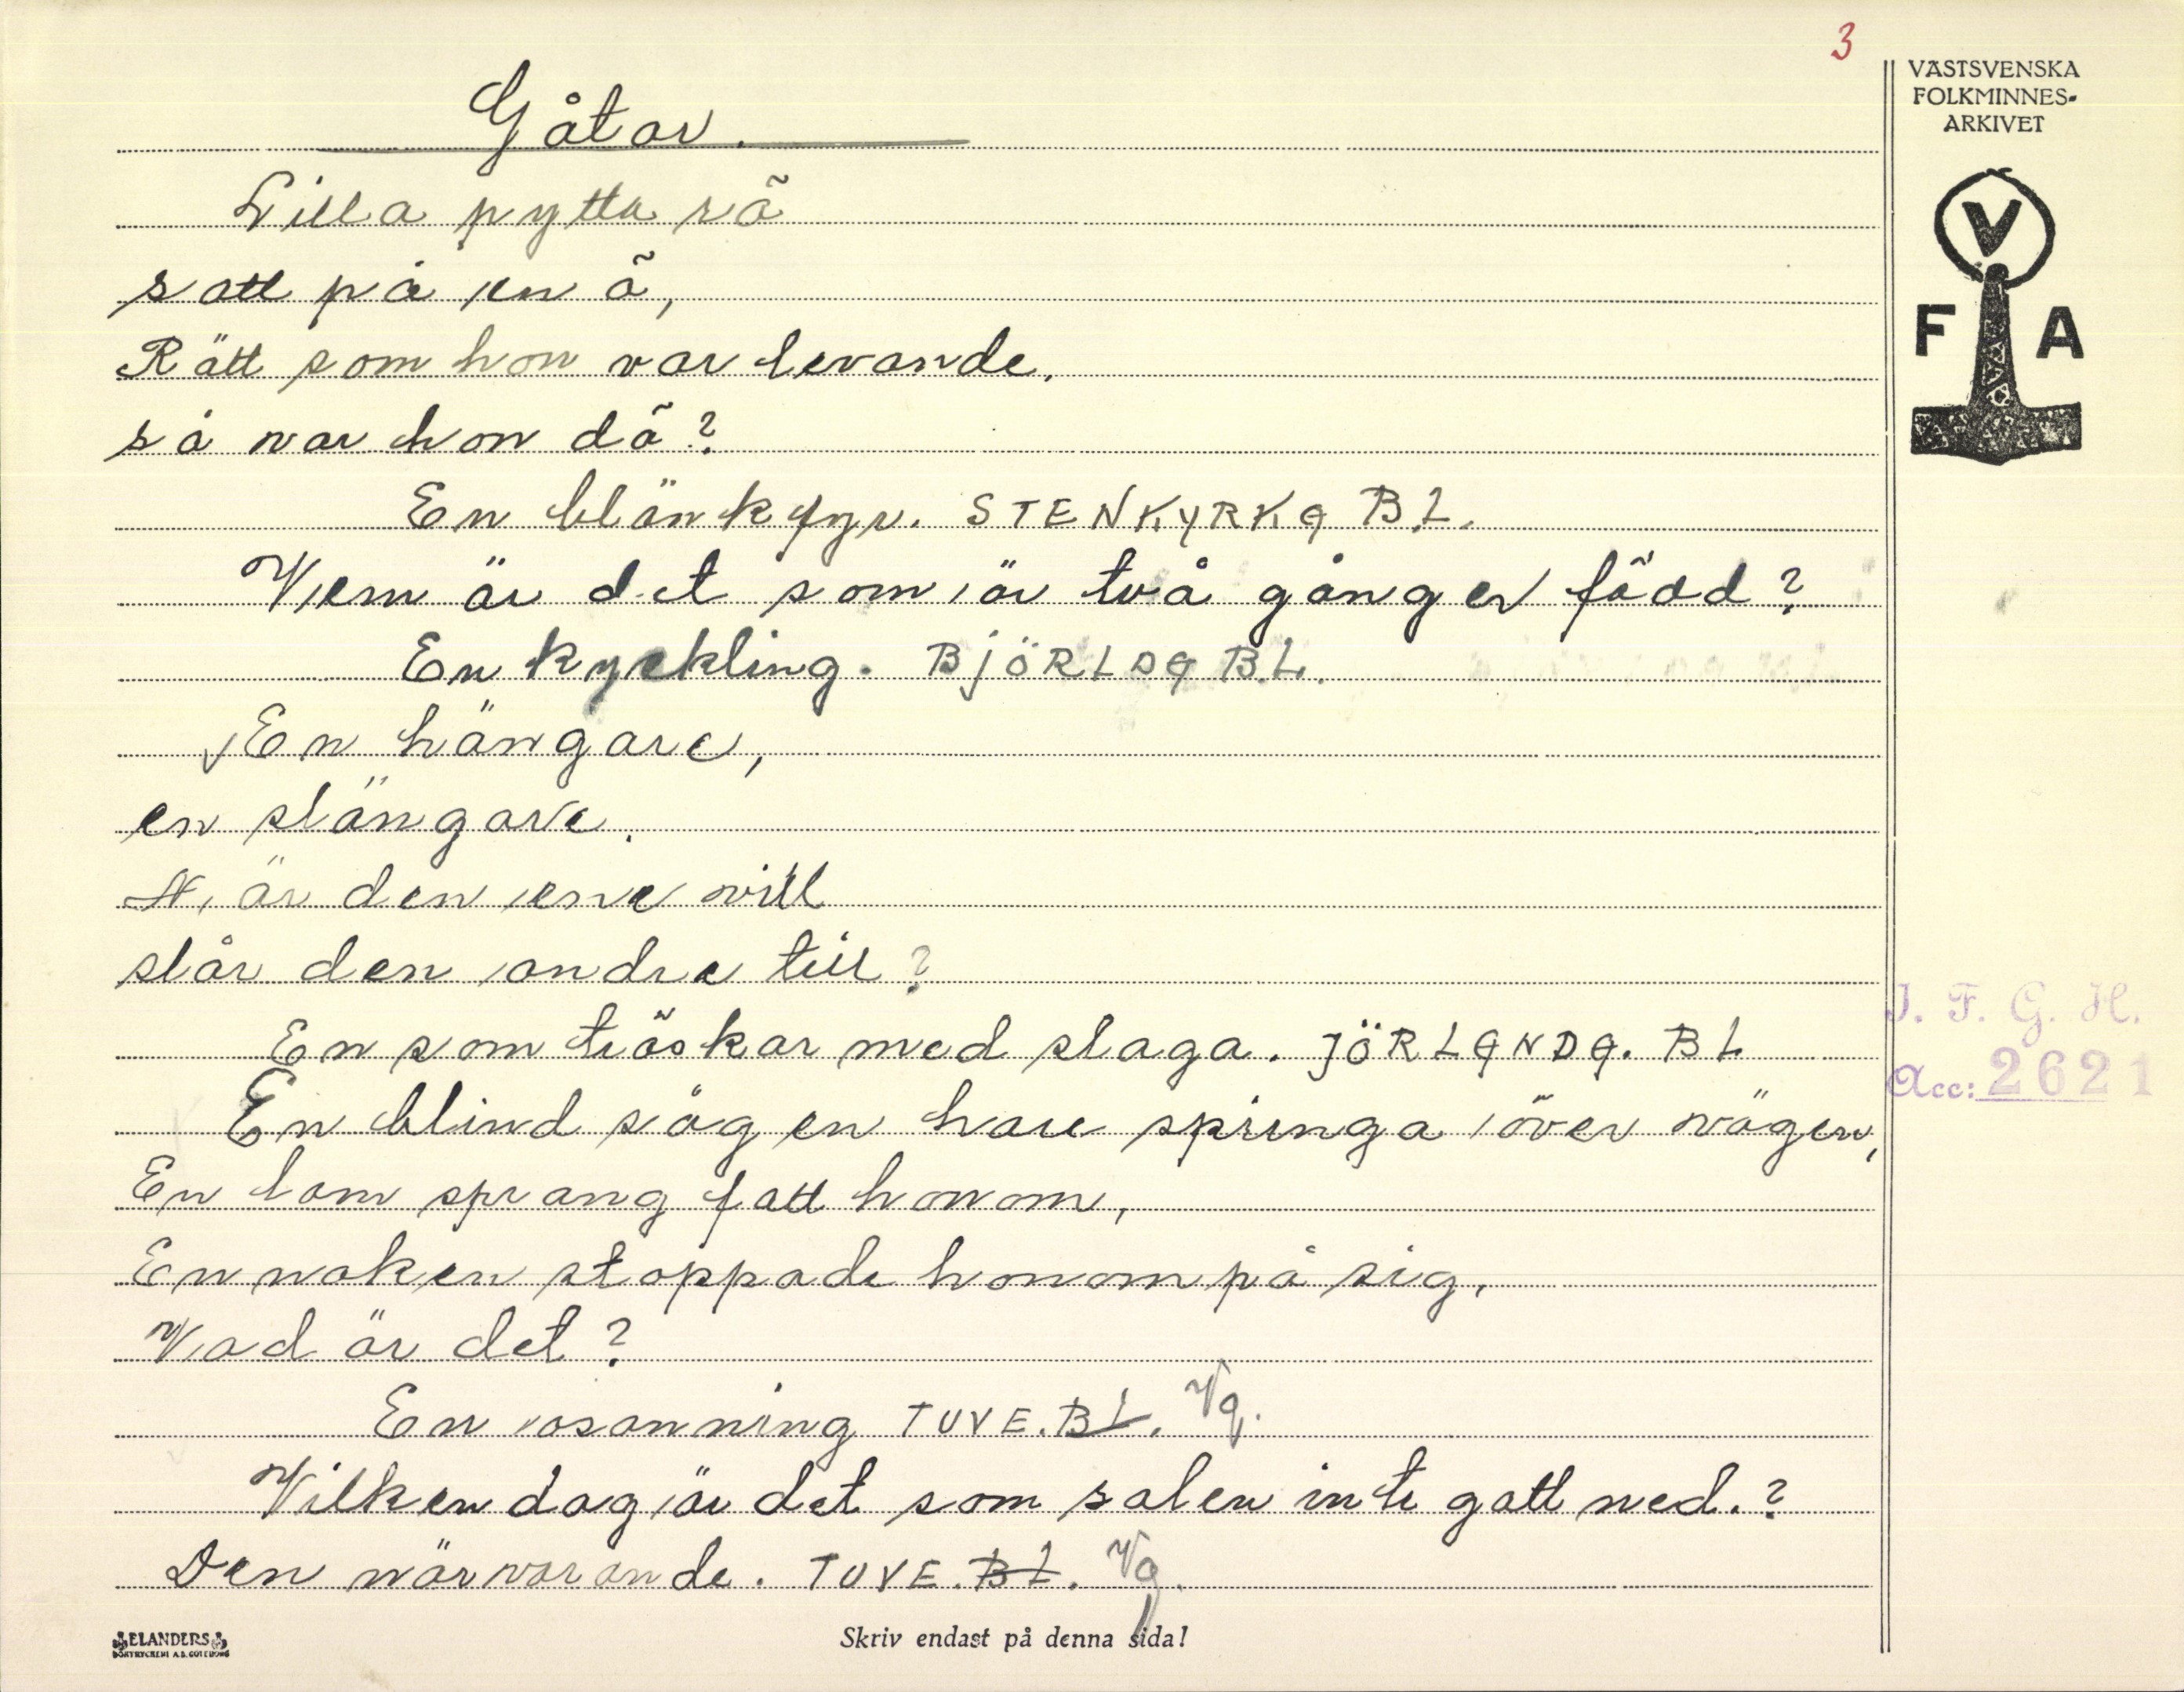 3
VÄSTSVENSKA
FOLKMINNES-
ARKIVET
V
F A
Gåtor.
Lilla pytta rö
satt på en ö,
Rätt som hon var levande,
så var hon dö?
En blänkfyr. STENKYRKA BL.
Vem är det som är två gånger född?
En kyckling. BJÖRLDA B.L.
En hängare,
en slängare.
När den ene vill
slår den andre till?
En som tröskar med slaga. JÖRLANDA. BL
En blind såg en hare springa över vägen,
En lam sprang fatt honom,
En naken stoppade honom på sig,
Vad är det?
En osanning TUVE. BL. Vg.
Vilken dag är det som solen inte gått ned.?
Den närvarande. TUVE. BL. Vg.
I. F. G. H.
Acc: 2621
ELANDERS
BOKTRYCKERI A.B. GÖTEBORG
Skriv endast på denna sida!